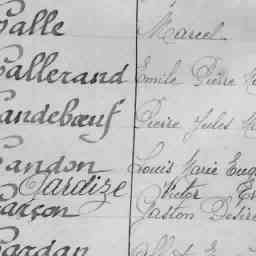 Galle Marcel
Gallerand Emile Pierre
Gandebœuf Pierre Jules
Gandon Louis Marie
Gardize Victor
Garçon Gaston Désiré
Gardan